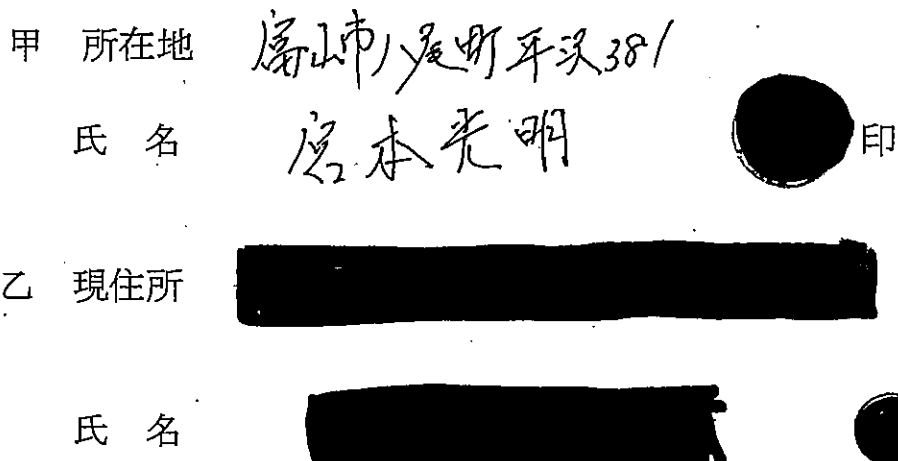 甲 所在地 富山市八尾町平沢381
氏 名 宮本光明 印
乙 現住所
氏 名